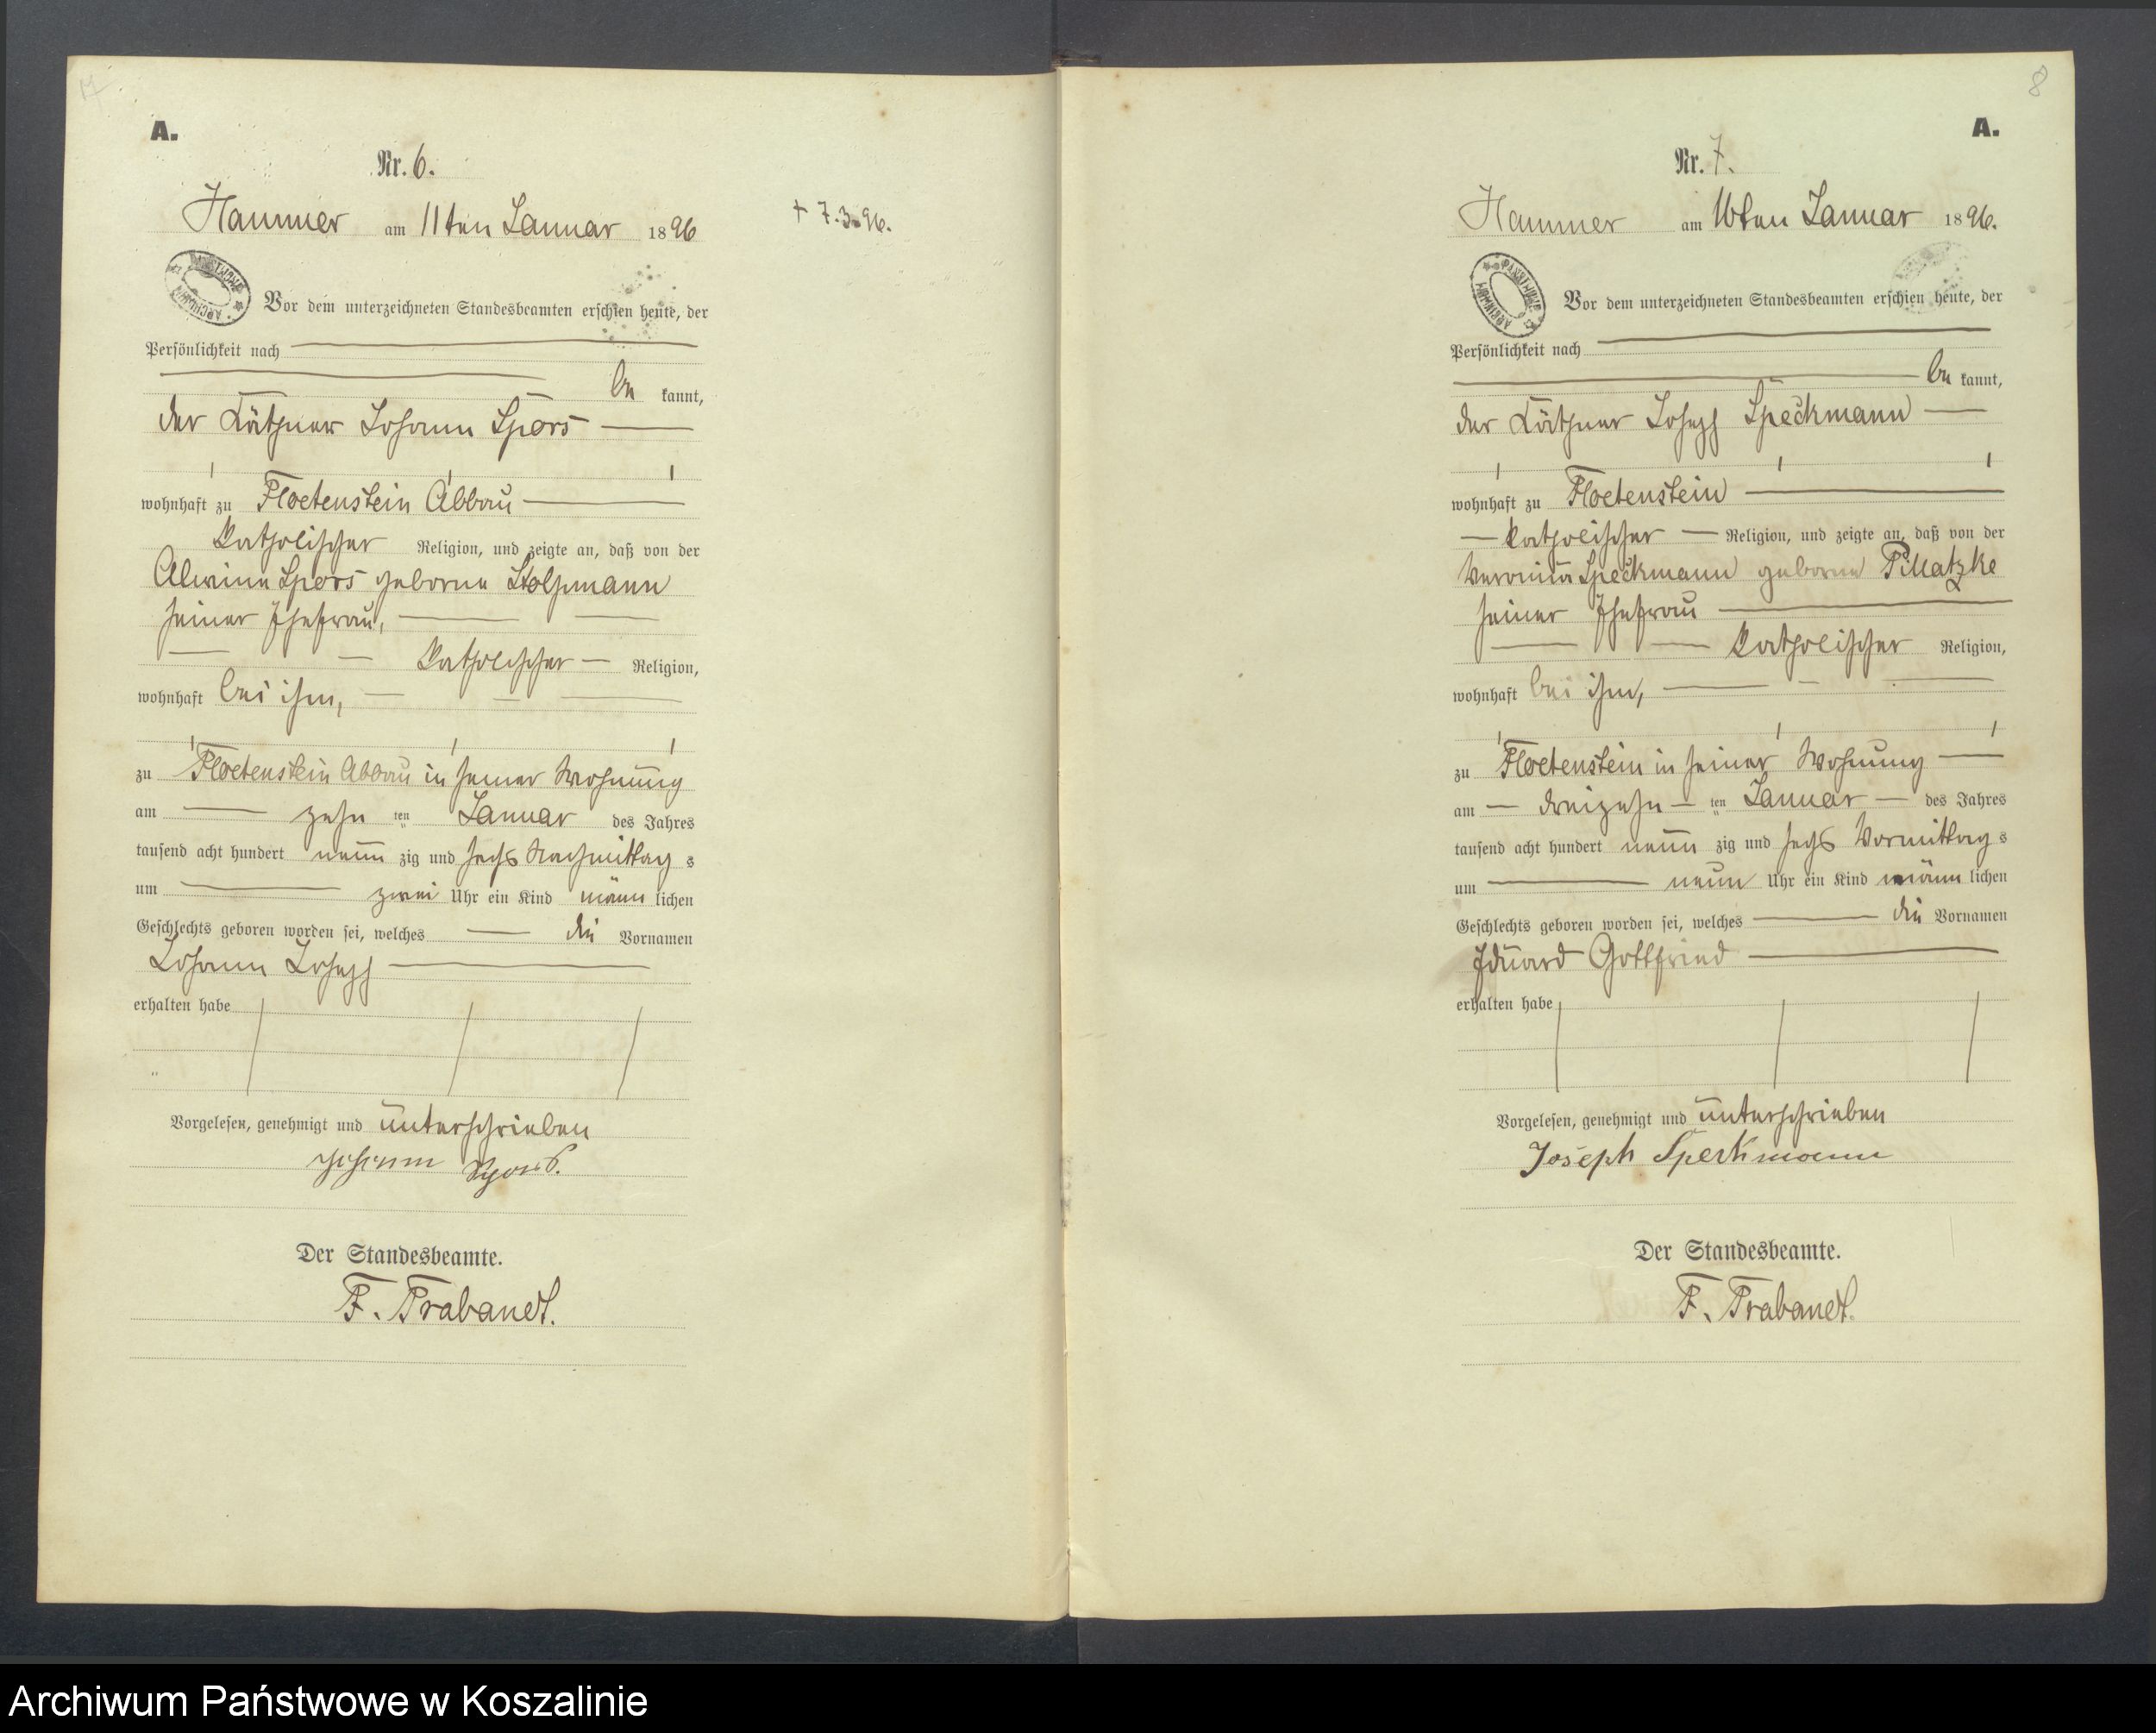 A.
Nr. 6.
Hammer am 11ten Januar 1896
+ 7.3.96.
Vor dem unterzeichneten Standesbeamten erschien heute, der
Persönlichkeit nach
be kannt,
der Käthner Johann Spors
wohnhaft zu Floetenstein Abbau
katholischer Religion, und zeigte an, daß von der
Alwine Spors geborne Stolpmann
seiner Ehefrau,
katholischer Religion,
wohnhaft bei ihm,
zu Floetenstein Abbau in seiner Wohnung
am zehn ten Januar des Jahres
tausend acht hundert neun zig und sechs Nachmittag s
um zwei Uhr ein Kind männ lichen
Geschlechts geboren worden sei, welches die Vornamen
Johann Joseph
erhalten habe
Vorgelesen, genehmigt und unterschrieben
Johann Spors.
Der Standesbeamte.
F. Trabandt.
8
A.
Nr. 7.
Hammer am 16ten Januar 1896.
ARCHIWUM PAŃSTWOWE
Vor dem unterzeichneten Standesbeamten erschien heute, der
Persönlichkeit nach
be kannt,
der Käthner Joseph Speckmann
wohnhaft zu Floetenstein
katholischer Religion, und zeigte an, daß von der
Veronika Speckmann geborne Pillatzke
seiner Ehefrau
katholischer Religion,
wohnhaft bei ihm,
zu Floetenstein in seiner Wohnung
am dreizehn ten Januar des Jahres
tausend acht hundert neun zig und sechs Vormittag s
um neun Uhr ein Kind männ lichen
Geschlechts geboren worden sei, welches die Vornamen
Eduard Gottfried
erhalten habe
Vorgelesen, genehmigt und unterschrieben
Joseph Speckmann
Der Standesbeamte.
F. Trabandt.
Archiwum Państwowe w Koszalinie